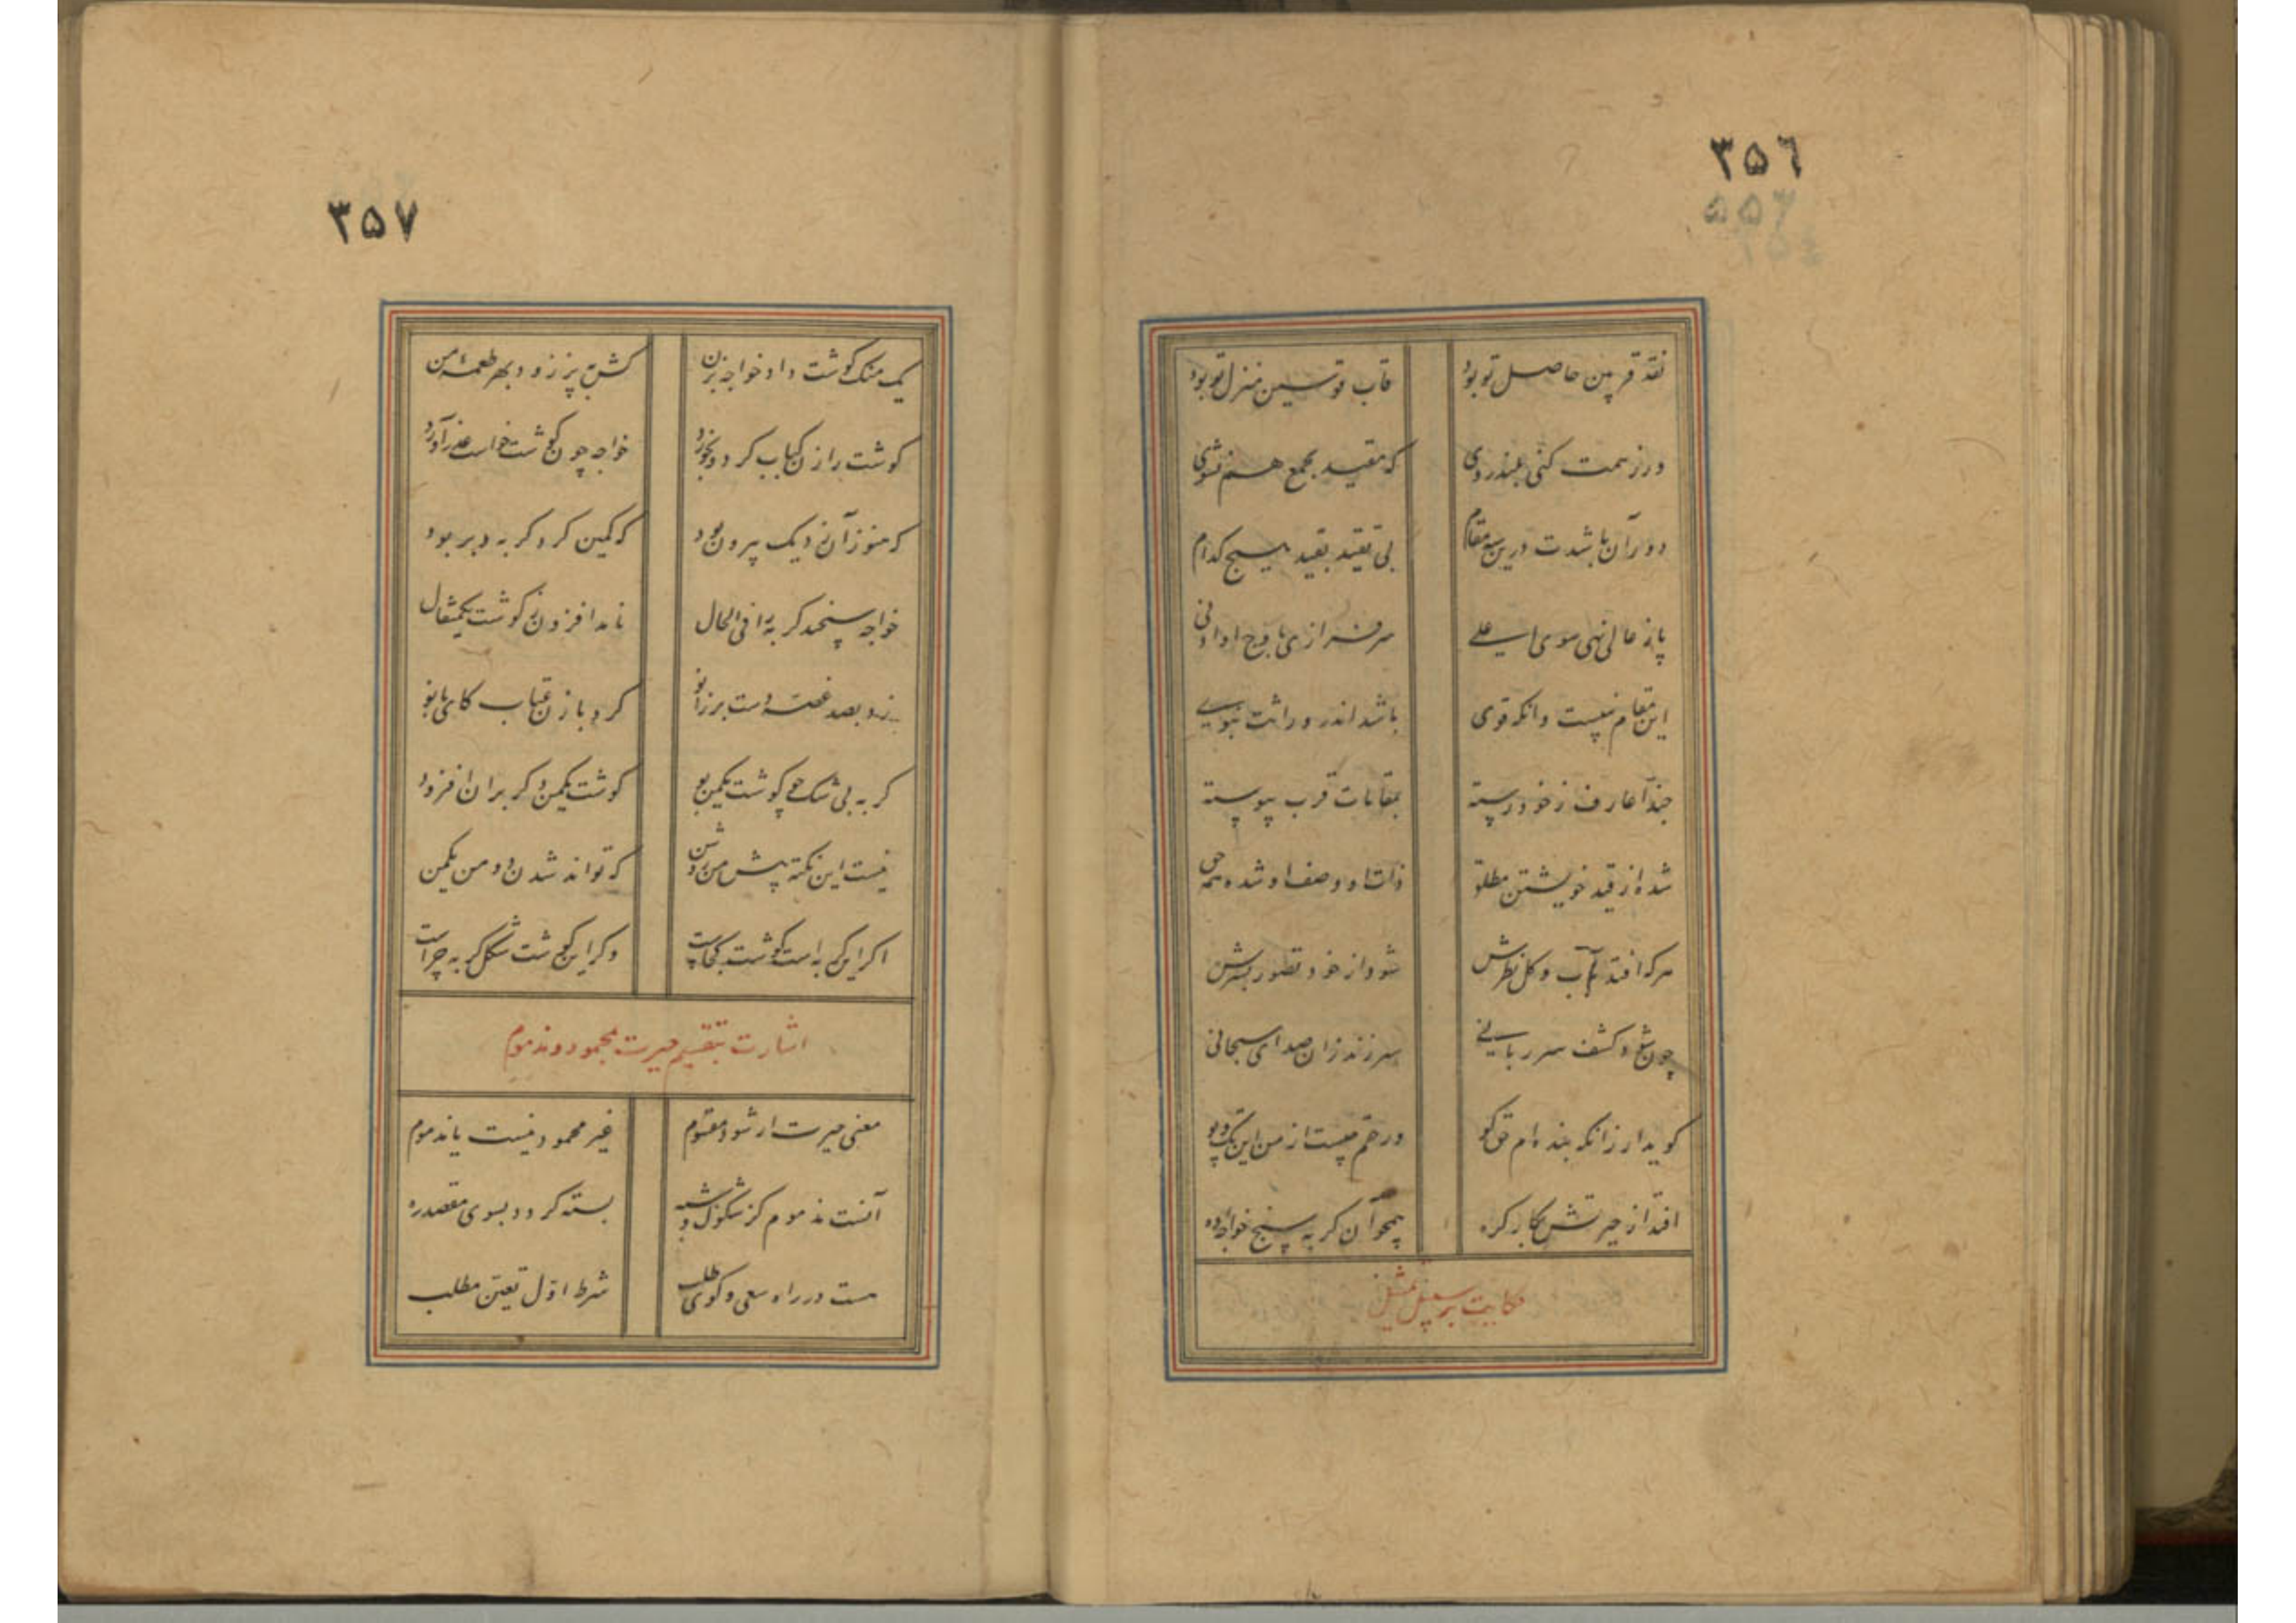 ۳۵۶
نقد قربین حاصل تو بود
قاب قوسین منزل تو بود
ور ز همت کنی بلندروی
که مقید بجمع هم نشوی
دوران باشدت درین سه مقام
بی تقید بقید هیچ کدام
پا ز عالی نهی سوی اعلی
سرفرازی باوج او ادنی
این مقام نیست وانکه قوی
باشد اندر وراثت نبوی
حبذا عارف ز خود رسته
بمقامات قرب پیوسته
شده از قید خویشتن مطلق
ذات او وصف او شده همه حق
هر که افتد بآب و گل نظرش
شود از خود تصور بشرش
چون شود کشف سر ربانی
سر زند زان صدای سبحانی
کوید ار زانکه بنده ام حق کو
ور حقم چیست از من این تک و پو
افتد از حیرتش بکار کره
همچو آن کربه سنج خواجه ده
حکایت بر سبیل تمثیل
۳۵۷
یک منک کوشت داد خواجه بزن
کش بپز زود بهر طعمه من
کوشت را زن کباب کرد و بخورد
خواجه چون کوشت خواست عذر آورد
که هنوز آن ز دیک بیرون بود
که کمین کرد کربه در بربود
خواجه سنجید کربه را فی الحال
نامد افزون ز کوشت یکمثقال
زد بصد غصه دست بر زانو
کرد با زن عتاب کای بانو
کربه بی شک چو کوشت یکمن بود
کوشت یکمن دکر بران افزود
نیست این نکته پیش من روشن
که تواند شدن دو من یکمن
اکر این کربه است کوشت کجاست
وکر این کوشت شکل کربه چراست
اشارت بتقسیم حیرت بمحمود و مذموم
معنی حیرت ار شود مقسوم
غیر محمود نیست یا مذموم
آنست مذموم کز شکوک و شبه
بسته کردد بسوی مقصد ره
هست در راه سعی و کوی طلب
شرط اول تعین مطلب